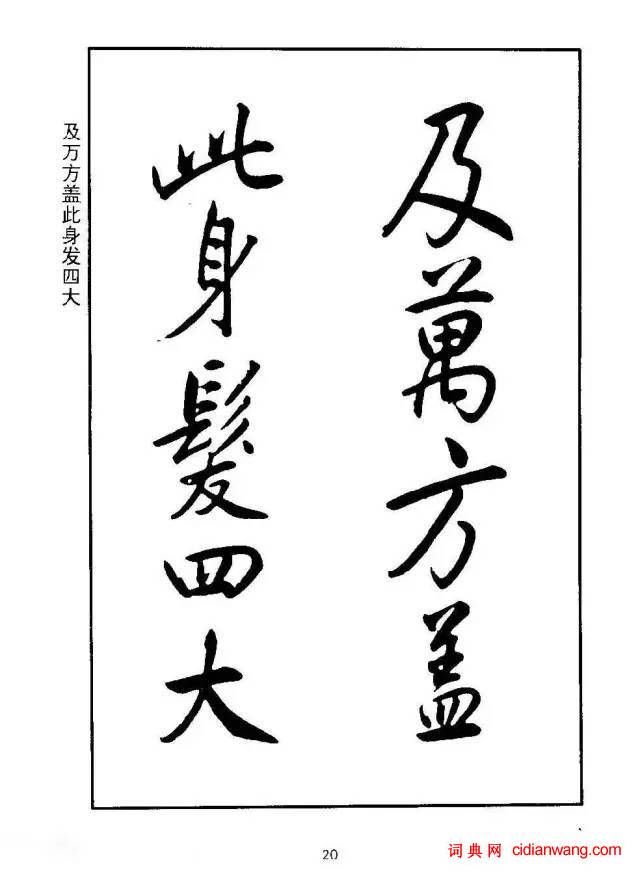 及萬方盖
此身髮四大
及万方盖此身发四大
20
词典网 cidianwang.com